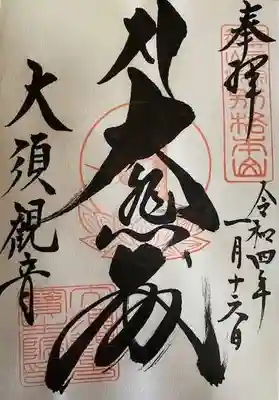 奉拝
令和四年
一月十六日
大悲殿
大須観音